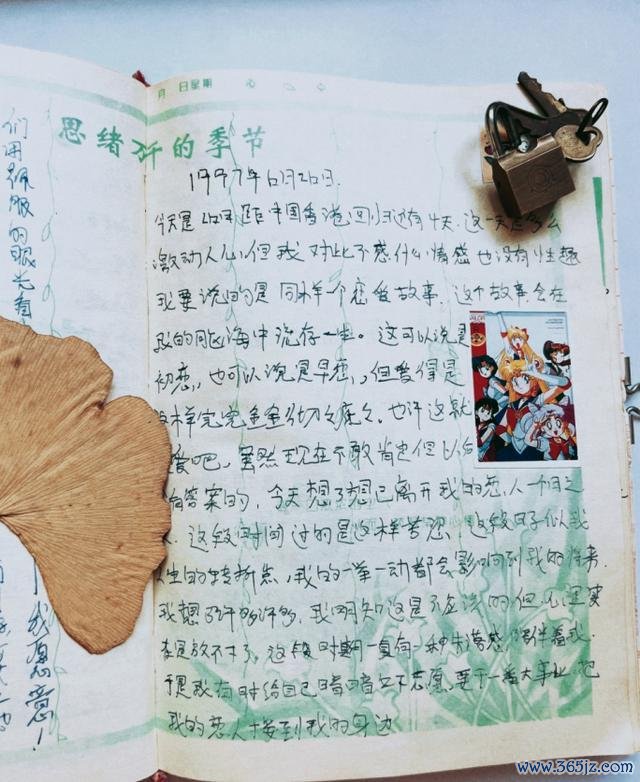 们用佩服的眼光看
我愿意！
月 日星期
思绪 的季节
1997年6月26日.
今天是26日距中国香港回归还有4天.这一天是多么
激动人心,但我对此不感什么情感也没有性趣
我要说的是同样一个恋爱故事.这个故事会在
我的脑海中流存一生。这可以说是
初恋,也可以说是早恋,但爱得是
样完完全全彻彻底底.也许这就
爱吧，虽然现在不敢肯定但以后
有答案的，今天想了想已离开我的恋人一个月之
.这段时间过的是这样苦恋.这段日子似我
人生的转折点,我的一举一动都会影响到我的将来.
我想了许多许多.我明知这是不应该的但心里实
在是放不下了.这段时期一直有一种失落感,陪伴着我.
于是我有时给自己暗暗立下志愿.要干一番大事业.把
我的恋人接到我的身边
www.365jz.com